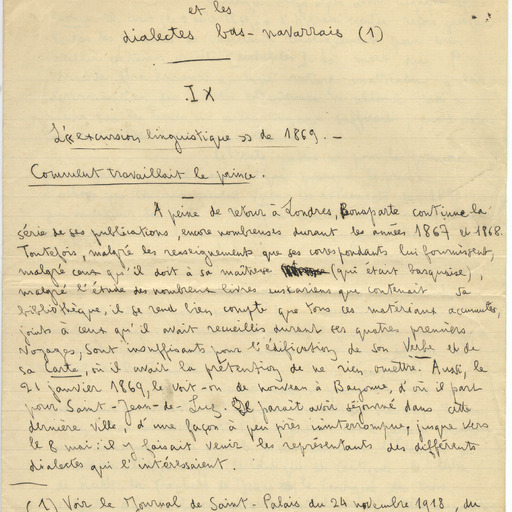 et les
dialectes bas-navarrais (1)
IX
L'« excursion linguistique » de 1869. —
Comment travaillait le prince.
A peine de retour à Londres, Bonaparte continue la
série de ses publications, encore nombreuses durant les années 1867 et 1868.
Toutefois, malgré les renseignements que ses correspondants lui fournissent,
malgré ceux qu'il doit à sa maîtresse (qui était basquaise),
malgré l'étude des nombreux livres euskariens que contenait sa
bibliothèque, il se rend bien compte que tous ces matériaux accumulés,
joints à ceux qu'il avait recueillis durant ses quatre premiers
voyages, sont insuffisants pour l'édification de son Verbe et de
sa Carte, où il avait la prétention de ne rien omettre. Aussi, le
21 janvier 1869, le voit-on de nouveau à Bayonne, d'où il part
pour Saint-Jean-de-Luz. Il paraît avoir séjourné dans cette
dernière ville, d'une façon à peu près ininterrompue, jusque vers
le 8 mai : il y faisait venir les représentants des différents
dialectes qui l'intéressaient.
(1) Voir le Journal de Saint-Palais du 24 novembre 1918, du